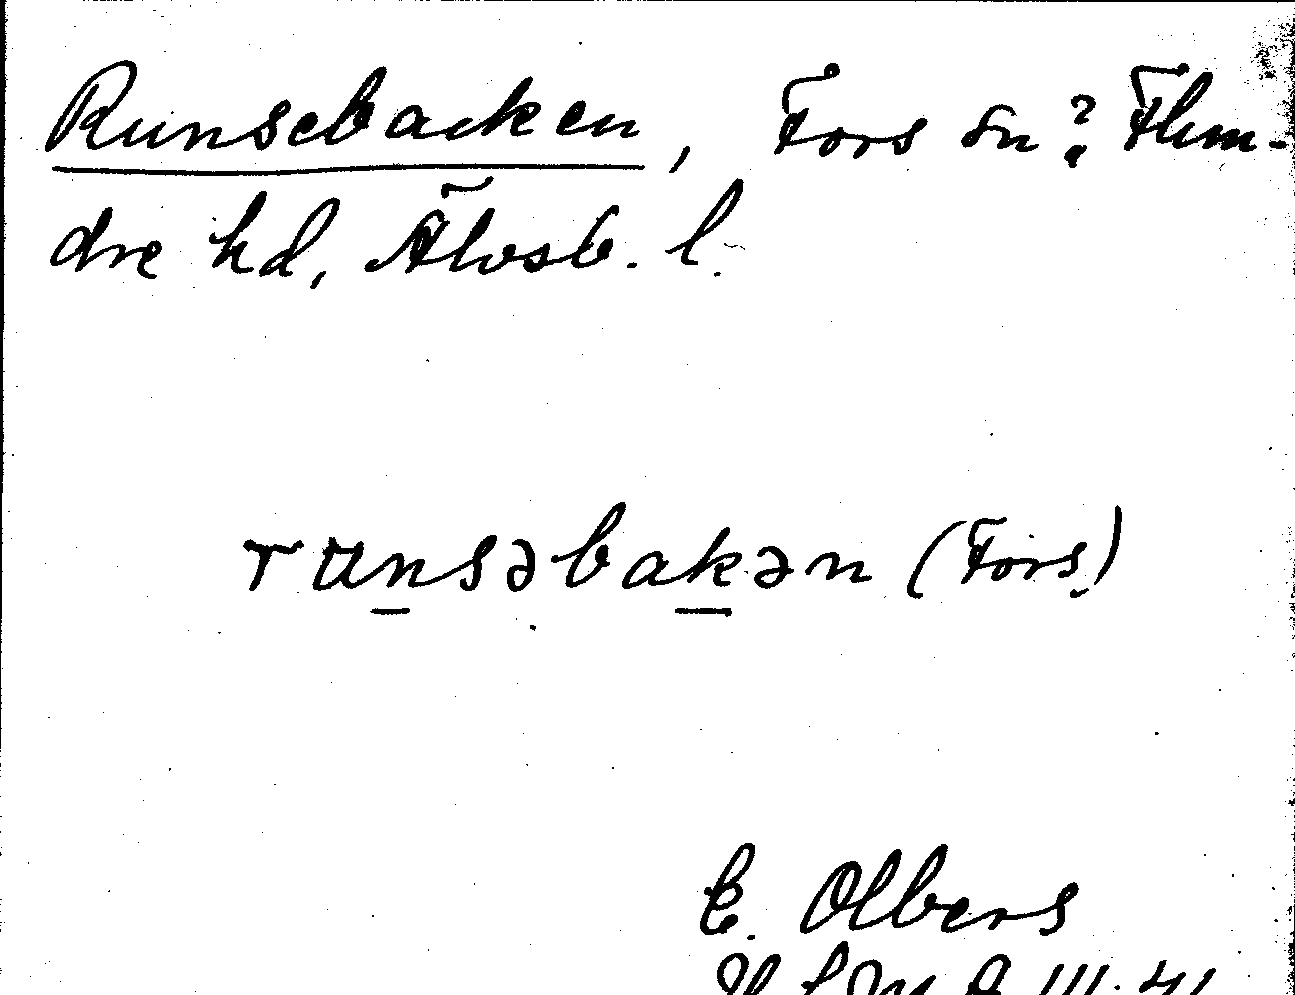 Runsebacken, Fors sn? Flun-
dre hd, Älvsb. l.
runsəbakən (Fors)
E. Olbers